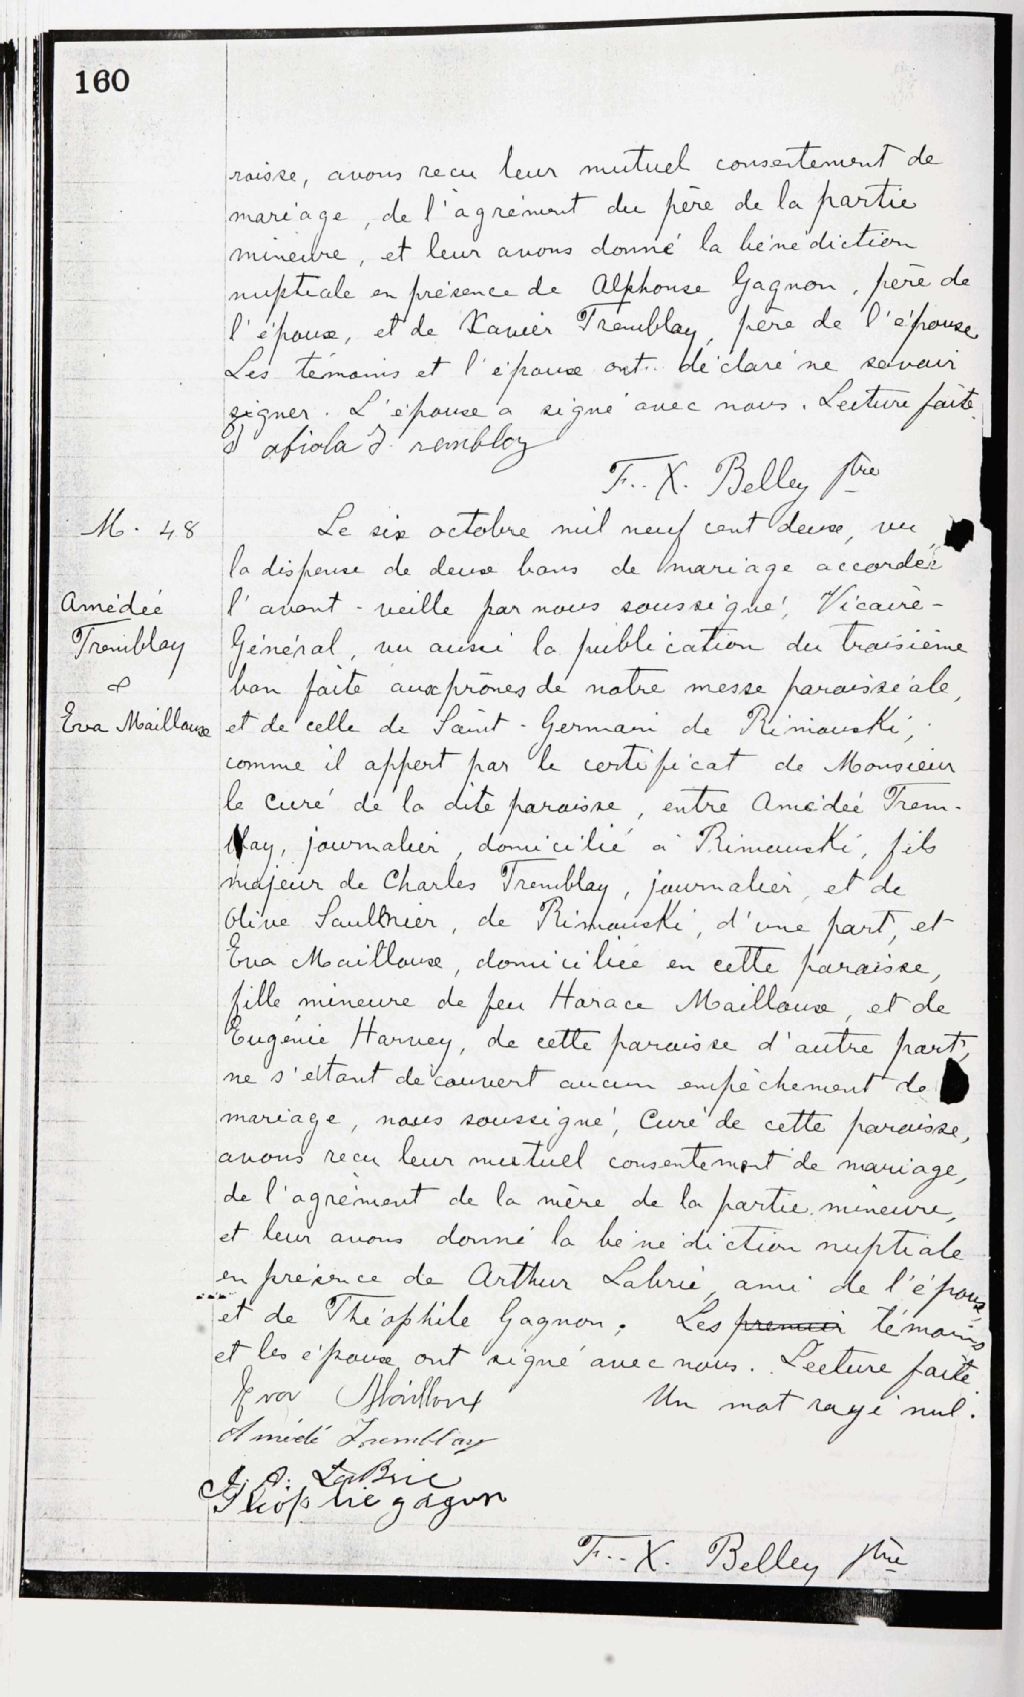 160
roisse, avons recu leur mutuel consentement de
mariage, de l'agrément du père de la partie
mineure, et leur avons donné la bénédiction
nuptiale en présence de Alphonse Gagnon, père de
l'époux, et de Xavier Tremblay, père de l'épouse.
Les témoins et l'époux ont déclaré ne savoir
signer. L'épouse a signé avec nous. Lecture faite.
F.. X. Belley ptre
M. 48
Amédée
Tremblay
&
Eva Mailloux
Le six octobre mil neuf cent deux, vu
la dispense de deux bans de mariage accordée
l'avant-veille par nous soussigné, Vicaire-
Général, vu aussi la publication du troisième
ban faite aux prônes de notre messe paroissiale,
et de celle de Saint-Germain de Rimouski,
comme il appert par le certificat de Monsieur
le curé de la dite paroisse, entre Amédée Trem-
blay, journalier, domicilié à Rimouski, fils
majeur de Charles Tremblay, journalier, et de
Olive Saulnier, de Rimouski, d'une part, et
Eva Mailloux, domiciliée en cette paroisse,
fille mineure de feu Horace Mailloux, et de
Eugénie Harvey, de cette paroisse d'autre part,
ne s'étant découvert aucun empêchement de
mariage, nous soussigné, Curé de cette paroisse,
avons recu leur mutuel consentement de mariage,
de l'agrément de la mère de la partie mineure,
et leur avons donné la bénédiction nuptiale
en présence de Arthur Labrie, ami de l'époux,
et de Théophile Gagnon. Les premier témoins
et les époux ont signé avec nous. Lecture faite.
Un mot rayé nul.
Eva Mailloux
Amédé Tremblay
J. A. LaBrie
gagnon
F.. X. Belley ptre